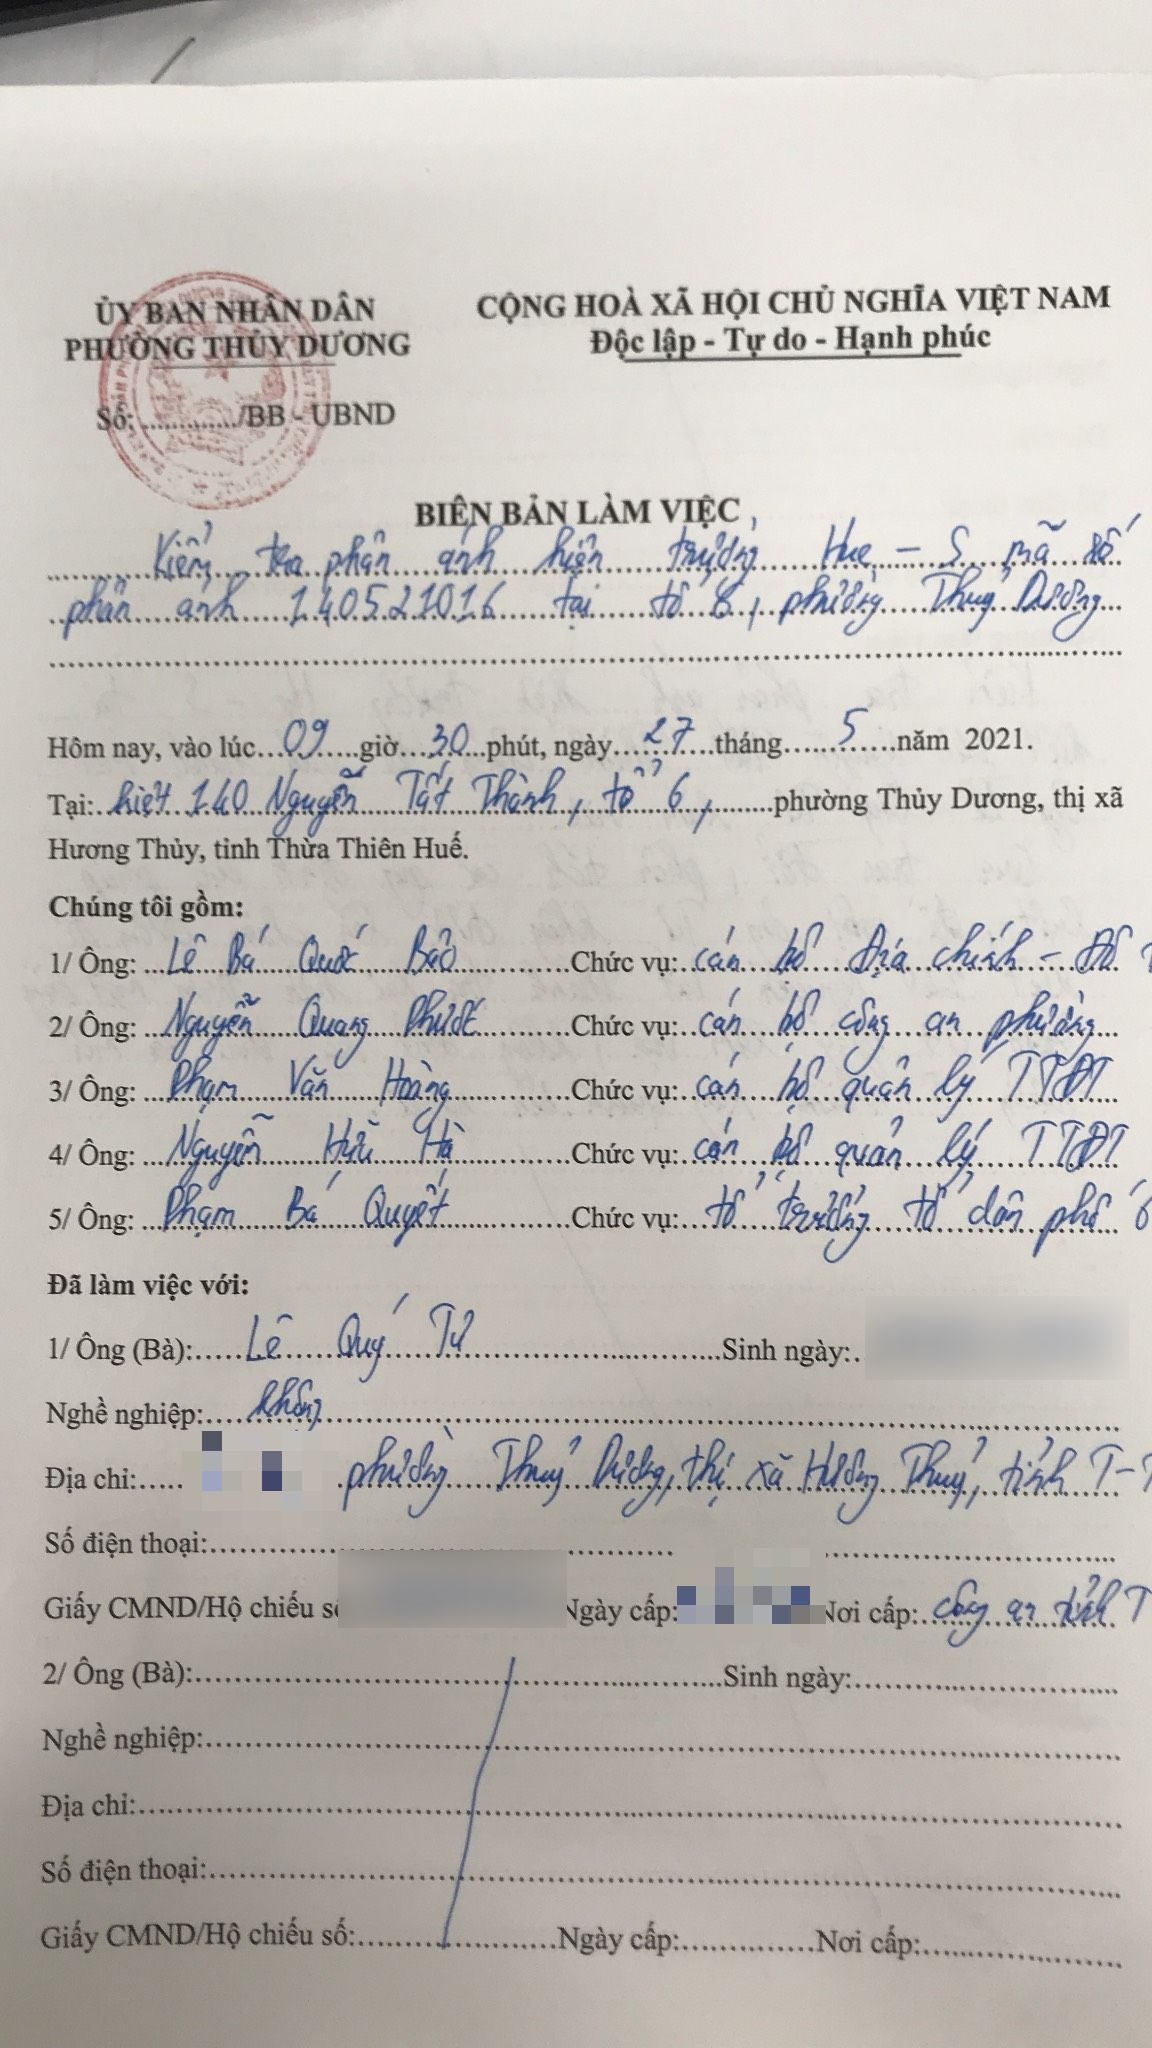 ỦY BAN NHÂN DÂN
PHƯỜNG THỦY DƯƠNG
CỘNG HOÀ XÃ HỘI CHỦ NGHĨA VIỆT NAM
Độc lập - Tự do - Hạnh phúc
Số: ............./BB - UBND
BIÊN BẢN LÀM VIỆC
Kiểm tra phản ánh hiện trường Hue - S mã số
phản ánh 140521016 tại tổ 6, phường Thuỷ Dương
Hôm nay, vào lúc 09 giờ 30 phút, ngày 27 tháng 5 năm 2021.
Tại: kiệt 140 Nguyễn Tất Thành, tổ 6, phường Thủy Dương, thị xã
Hương Thủy, tỉnh Thừa Thiên Huế.
Chúng tôi gồm:
1/ Ông: Lê Bá Quốc Bảo Chức vụ: cán bộ Địa chính - Đô
2/ Ông: Nguyễn Quang Phước Chức vụ: cán bộ công an phường
3/ Ông: Phạm Văn Hoàng Chức vụ: cán bộ quản lý TTĐT
4/ Ông: Nguyễn Hữu Hà Chức vụ: cán bộ quản lý TTĐT
5/ Ông: Phạm Bá Quyết Chức vụ: tổ trưởng tổ dân phố 6
Đã làm việc với:
1/ Ông (Bà): Lê Quý Tứ Sinh ngày:
Nghề nghiệp: không
Địa chỉ: phường Thuỷ Dương, thị xã Hương Thuỷ, tỉnh T-T
Số điện thoại:
Giấy CMND/Hộ chiếu số Ngày cấp: Nơi cấp: công an tỉnh T
2/ Ông (Bà): Sinh ngày:
Nghề nghiệp:
Địa chỉ:
Số điện thoại:
Giấy CMND/Hộ chiếu số: Ngày cấp: Nơi cấp: